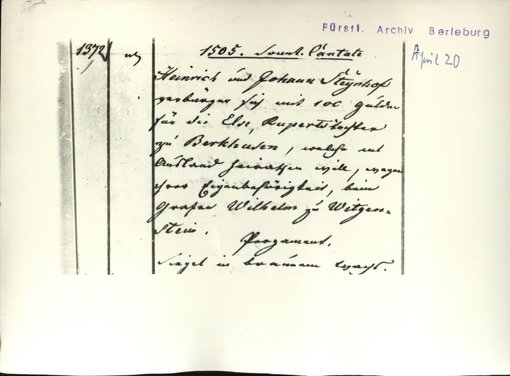 Fürstl. Archiv Berleburg
April 20
1372 1505. Sonnt. Cantate
Heinrich und Johann Steynhoff
verbürgen sich mit 100 Gulden
für die Else, Ruperts Tochter
zu Berkhusen, welche
Ausland heirathen will, wegen
ihrer Eigenbehörigkeit, beim
Grafen Wilhelm zu Witgen-
stein.
Pergament.
Siegel in braunem Wachs.